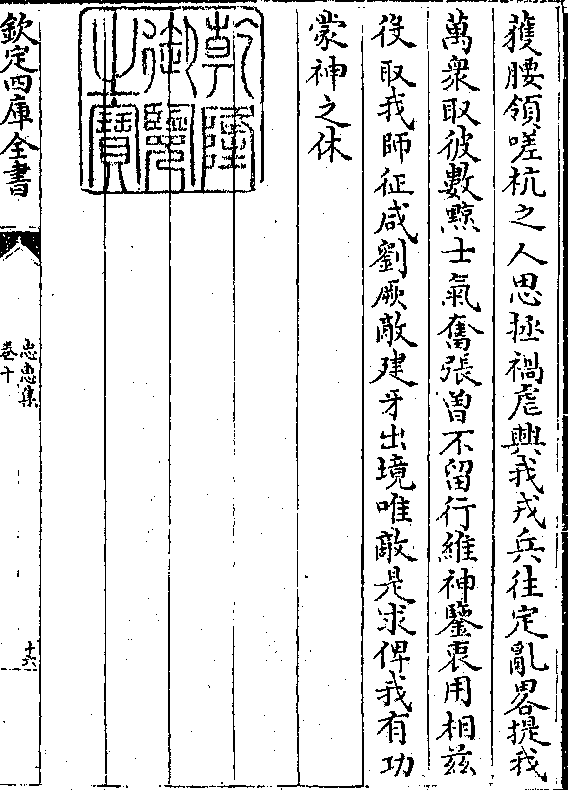 蒦腰領嗟杭之人思拯禍虐興我戎兵往定亂畧提我
萬衆取彼數黥士氣奮張曽不留行維神鑒衷用相兹
役取我師征咸劉厥敵建牙出境唯敵是求俾我有功
蒙神之休
乾隆御覽之寶
欽定四庫全書
忠惠集
卷十
十六